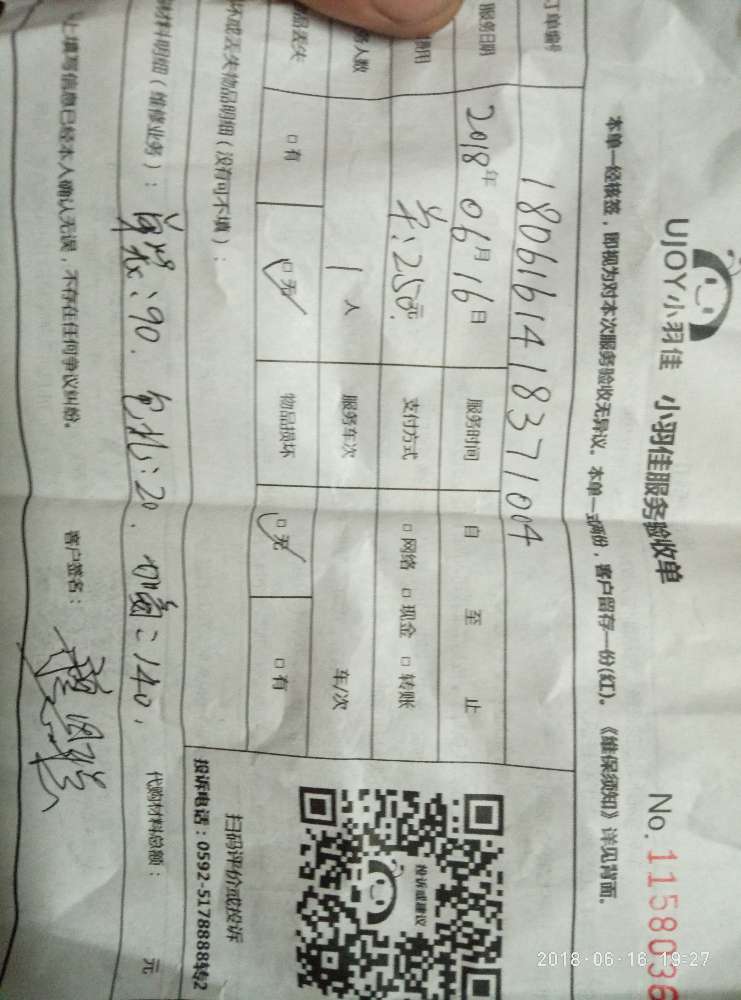 UJOY小羽佳 小羽佳服务验收单 No.1158036
本单一经核签，即视为对本次服务验收无异议。本单一式两份，客户留存一份(红)。《维保须知》详见背面。
订单编号 18061614183710 04
服务日期 2018年06月16日 服务时间 自 至 止
费用 单:250元. 支付方式 □网络 □现金 □转账
务人数 1人 服务车次 车/次
品丢失 □有 □无 物品损坏 □无 □有
坏或丢失物品明细（没有可不填）：
材料明细（维修业务）： :90. :20. :140.
代购材料总额： 元
上填写信息已经本人确认无误，不存在任何争议纠纷。 客户签名：
投诉或建议
扫码评价或投诉
投诉电话：0592-5178888转2
2018-06-16 19:27